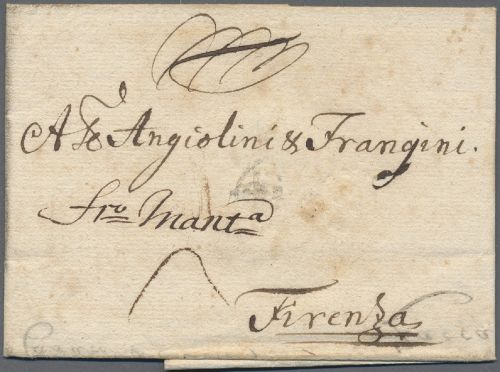 Angiolini & Frangini.
fro. Manta
Firenza